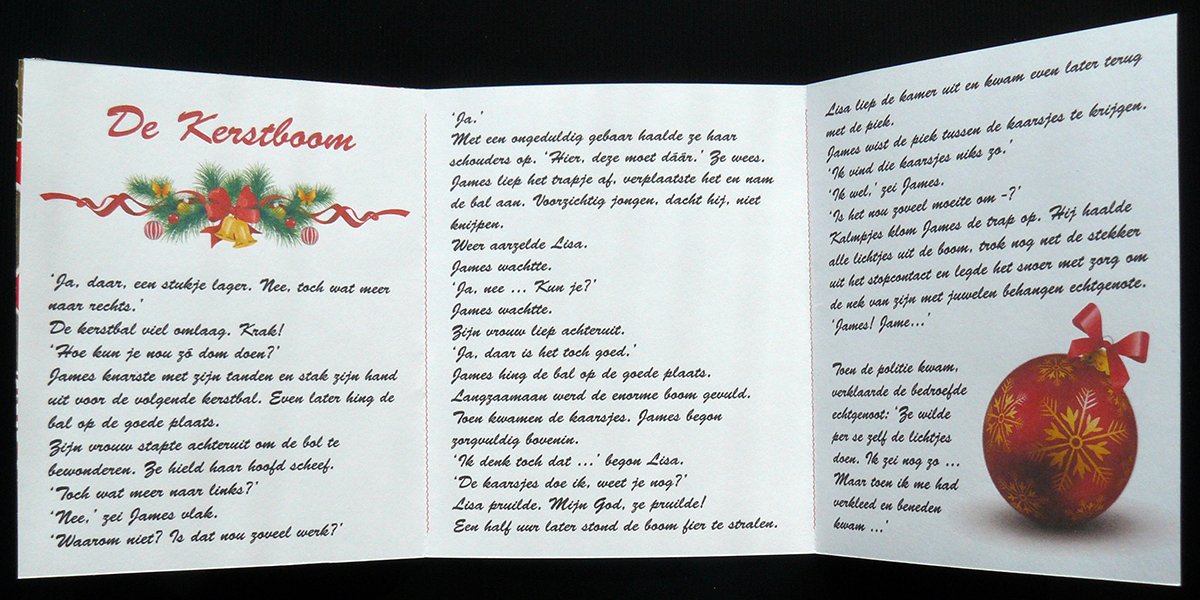 De Kerstboom
'Ja, daar, een stukje lager. Nee, toch wat meer
naar rechts.'
De kerstbal viel omlaag. Krak!
'Hoe kun je nou zó dom doen?'
James knarste met zijn tanden en stak zijn hand
uit voor de volgende kerstbal. Even later hing de
bal op de goede plaats.
Zijn vrouw stapte achteruit om de bol te
bewonderen. Ze hield haar hoofd scheef.
'Toch wat meer naar links?'
'Nee,' zei James vlak.
'Waarom niet? Is dat nou zoveel werk?'
'Ja.'
Met een ongeduldig gebaar haalde ze haar
schouders op. 'Hier, deze moet dáár.' Ze wees.
James liep het trapje af, verplaatste het en nam
de bal aan. Voorzichtig jongen, dacht hij, niet
knijpen.
Weer aarzelde Lisa.
James wachtte.
'Ja, nee ... Kun je?'
James wachtte.
Zijn vrouw liep achteruit.
'Ja, daar is het toch goed.'
James hing de bal op de goede plaats.
Langzaamaan werd de enorme boom gevuld.
Toen kwamen de kaarsjes. James begon
zorgvuldig bovenin.
'Ik denk toch dat ...' begon Lisa.
'De kaarsjes doe ik, weet je nog?'
Lisa pruilde. Mijn God, ze pruilde!
Een half uur later stond de boom fier te stralen.
Lisa liep de kamer uit en kwam even later terug
met de piek.
James wist de piek tussen de kaarsjes te krijgen.
'Ik vind die kaarsjes niks zo.'
'Ik wel,' zei James.
'Is het nou zoveel moeite om -?'
Kalmpjes klom James de trap op. Hij haalde
alle lichtjes uit de boom, trok nog net de stekker
uit het stopcontact en legde het snoer met zorg om
de nek van zijn met juwelen behangen echtgenote.
'James! Jame...'
Toen de politie kwam,
verklaarde de bedroefde
echtgenoot: 'Ze wilde
per se zelf de lichtjes
doen. Ik zei nog zo ...
Maar toen ik me had
verkleed en beneden
kwam ...'